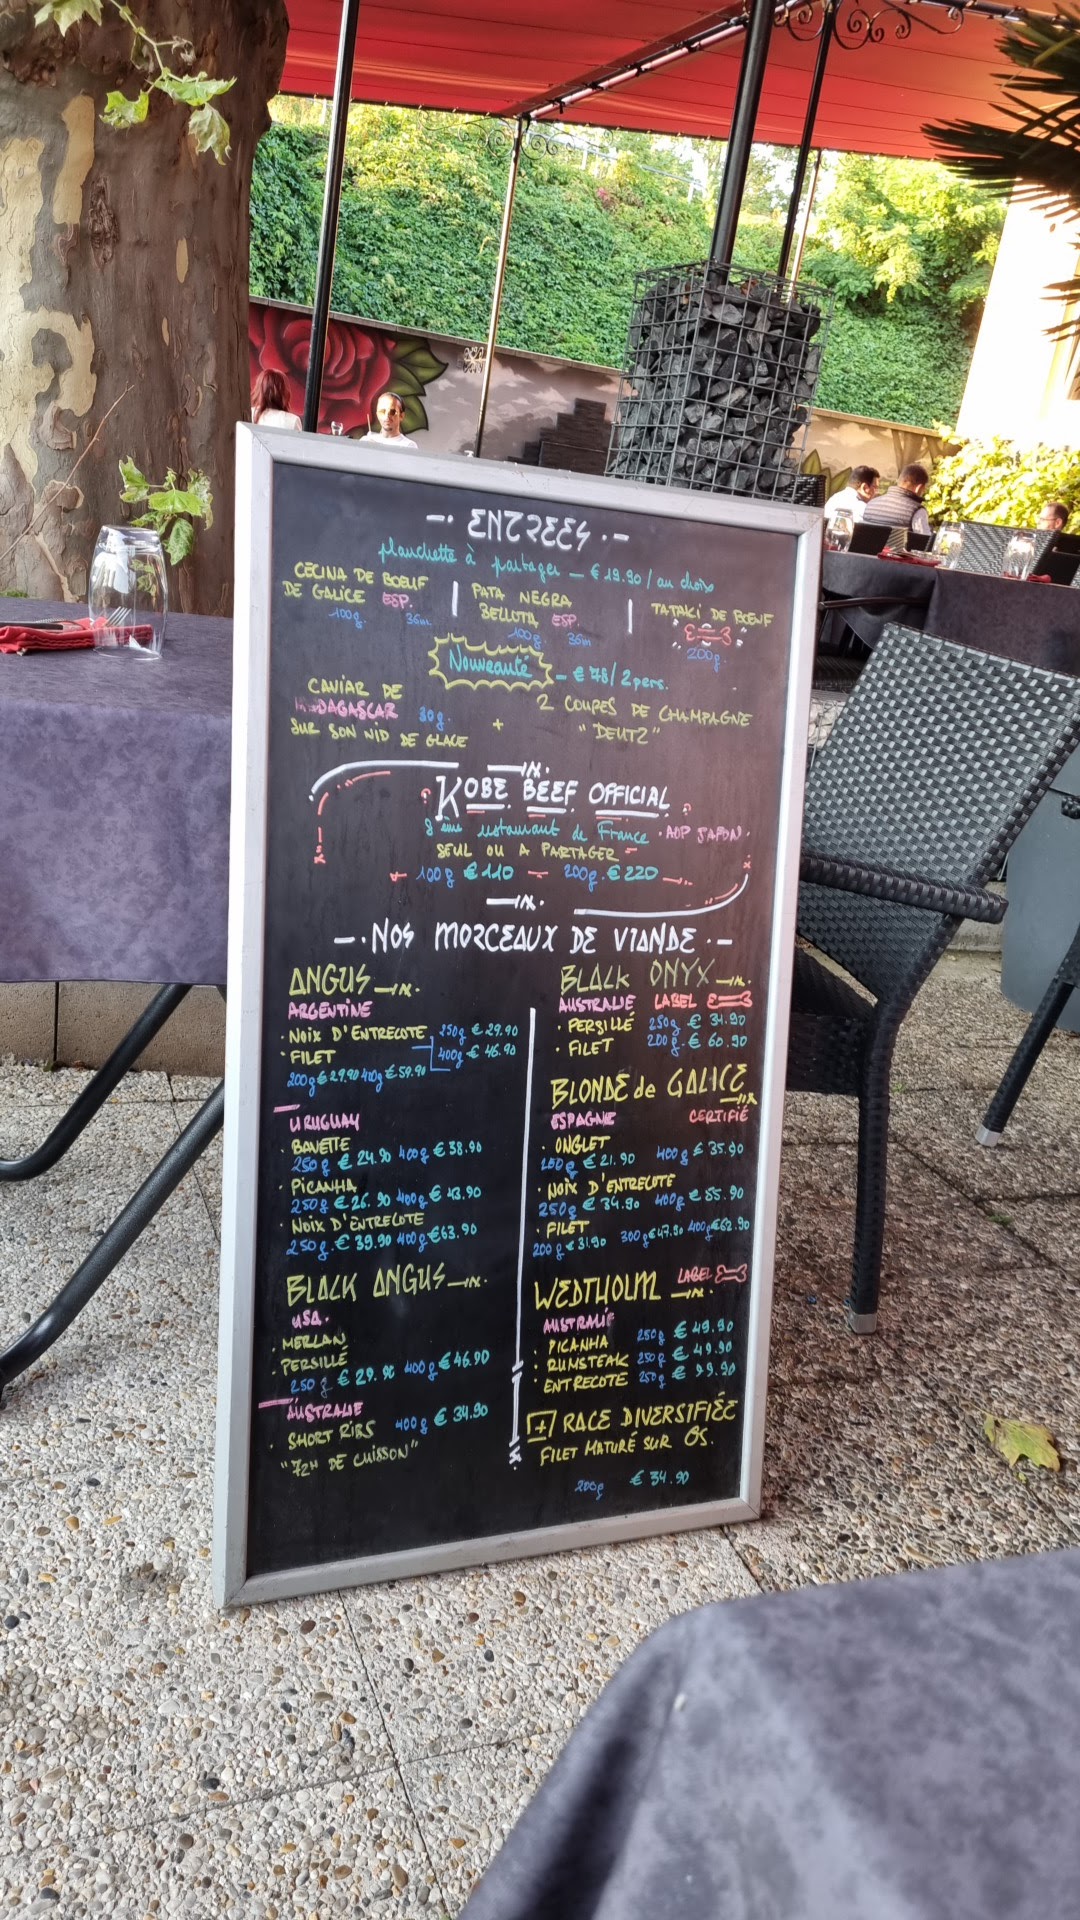 ENTREES
planchette à partager — €19.90 / au choix
CECINA DE BŒUF
DE GALICE ESP.
100g. 36m
PATA NEGRA
BELLOTA ESP.
100g. 36m
TATAKI DE BŒUF
200g.
Nouveauté — €78/2pers.
CAVIAR DE
MADAGASCAR 30g.
SUR SON NID DE GLACE
+
2 COUPES DE CHAMPAGNE
"DEUTZ"
KOBE BEEF OFFICIAL
8ème restaurant de France · AOP JAPON ·
SEUL OU A PARTAGER
100g €110 — 200g. €220
NOS MORCEAUX DE VIANDE
ANGUS
ARGENTINE
· NOIX D'ENTRECOTE 250g €29.90
400g €46.90
· FILET
200g €29.90 400g €59.90
URUGUAY
· BAVETTE
250g €24.90 400g €38.90
· PICANHA
250g €26.90 400g €43.90
· NOIX D'ENTRECOTE
250g. €39.90 400g €63.90
BLACK ANGUS
USA.
· MERLAN
PERSILLÉ
250g €29.90 400g €46.90
AUSTRALIE
· SHORT RIBS 400g €34.90
"72H DE CUISSON"
BLACK ONYX
AUSTRALIE LABEL
· PERSILLÉ 250g €
· FILET 200g. €60.90
BLONDE de GALICE
ESPAGNE CERTIFIÉ
· ONGLET
€21.90 400g €35.90
· NOIX D'ENTRECOTE
250g €34.90 400g €55.90
· FILET
200g €31.90 300g €47.90 400g €62.90
WEDTHOLM LABEL
AUSTRALIE
· PICANHA 250g €49.90
· RUMSTEAK 250g €49.90
· ENTRECOTE 250g € 99.90
+ RACE DIVERSIFIÉE
FILET MATURÉ SUR OS.
200g €34.90